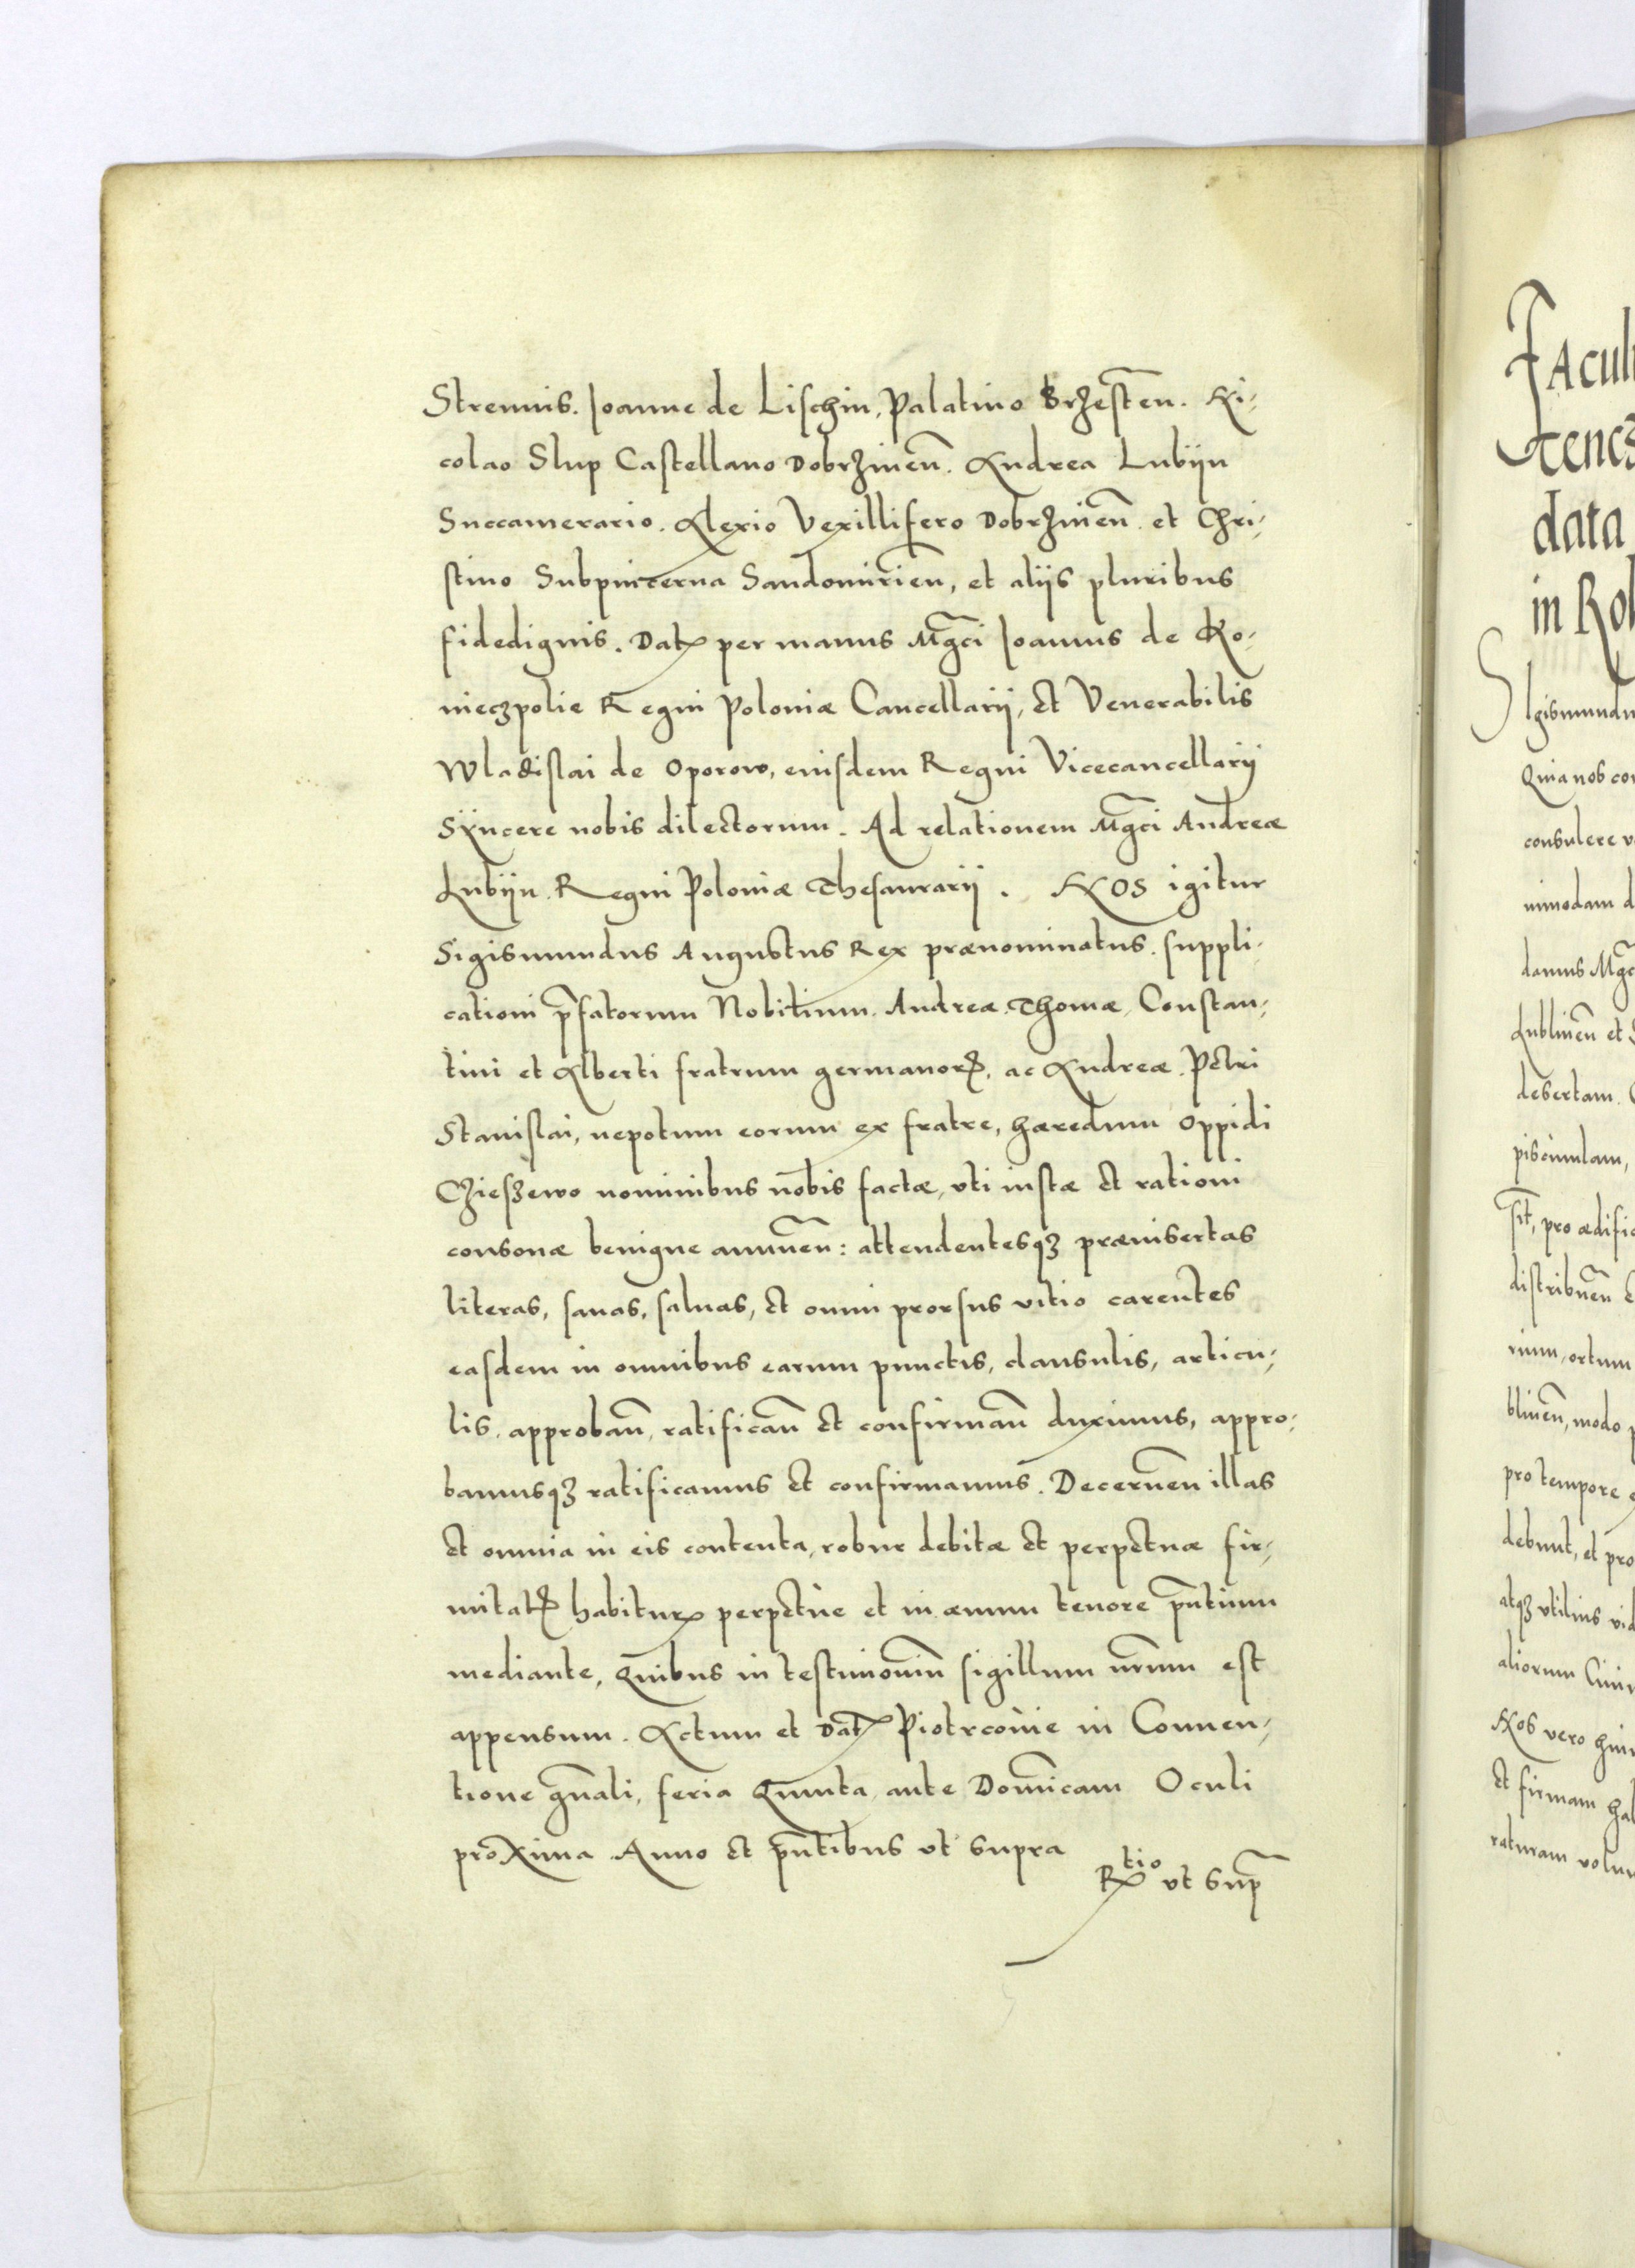 Strennis. Joanne de Lischin, Palatino Brzesten̄. Ni-
colao Slup Castellano Dobrzinen̄. Andrea Lubijn
Succamerario. Alexio Vexillifero Dobrzinen̄. et Chri-
stino Subpincerna Sandomirien̄, et alijs pluribus
fidedignis. Datꝝ per manus Mgci Joannis de Ko-
nieczpolie Regni Poloniæ Cancellarij, et Venerabilis
Wladislai de Oporow, eiusdem Regni Vicecancellarij
Syncere nobis dilectorum. Ad relationem Mgci Andreæ
Lubijn Regni Poloniæ Thesaurarij. NOS igitur
Sigismundus Augustus Rex prænominatus. suppli-
cationi p̄fatorum Nobilium. Andreæ. Thomæ, Constan-
tini et Alberti fratrum germanorꝝ, ac Andreæ. Petri
Stanislai, nepotum eorum ex fratre, hæredum oppidi
Czieszewo nominibus nobis factæ, vti iustæ et rationi
consonæ benigne annuen̄: attendentesqꝫ præinsertas
literas, sanas, saluas, et omni prorsus vitio carentes
easdem in omnibus earum punctis, clausulis, articu-
lis, approban̄, ratifican̄ et confirman̄ duximus, appro-
bamusqꝫ ratificamus et confirmamus. Decernen̄ illas
et omnia in eis contenta, robur debitæ et perpetuæ fir-
mitatꝭ habiturꝝ perpetue et in æuum tenore p̄ntium
mediante, Quibus in testimoniū sigillum nr̄um est
appensum. Actum et Datꝝ Piotrcouie in Conuen-
tione gn̄ali, feria Quinta, ante Dominicam Oculi
proxima Anno et p̄ntibus vt supra
Rtio vt sup̄
Facul
tencz
data
in Rol
Sigismundu
Quia nob con
consulere v
nimodam d
damus Mgc
Lublinen̄ et
desertam.
piscinulam,
sit, pro ædific
distribuen̄
rium, ortum
blinen̄, modo
pro tempore
debunt, et pro
atqꝫ vtilius vid
aliorum Ciui
Nos vero hui
et firmam ha
raturam volu